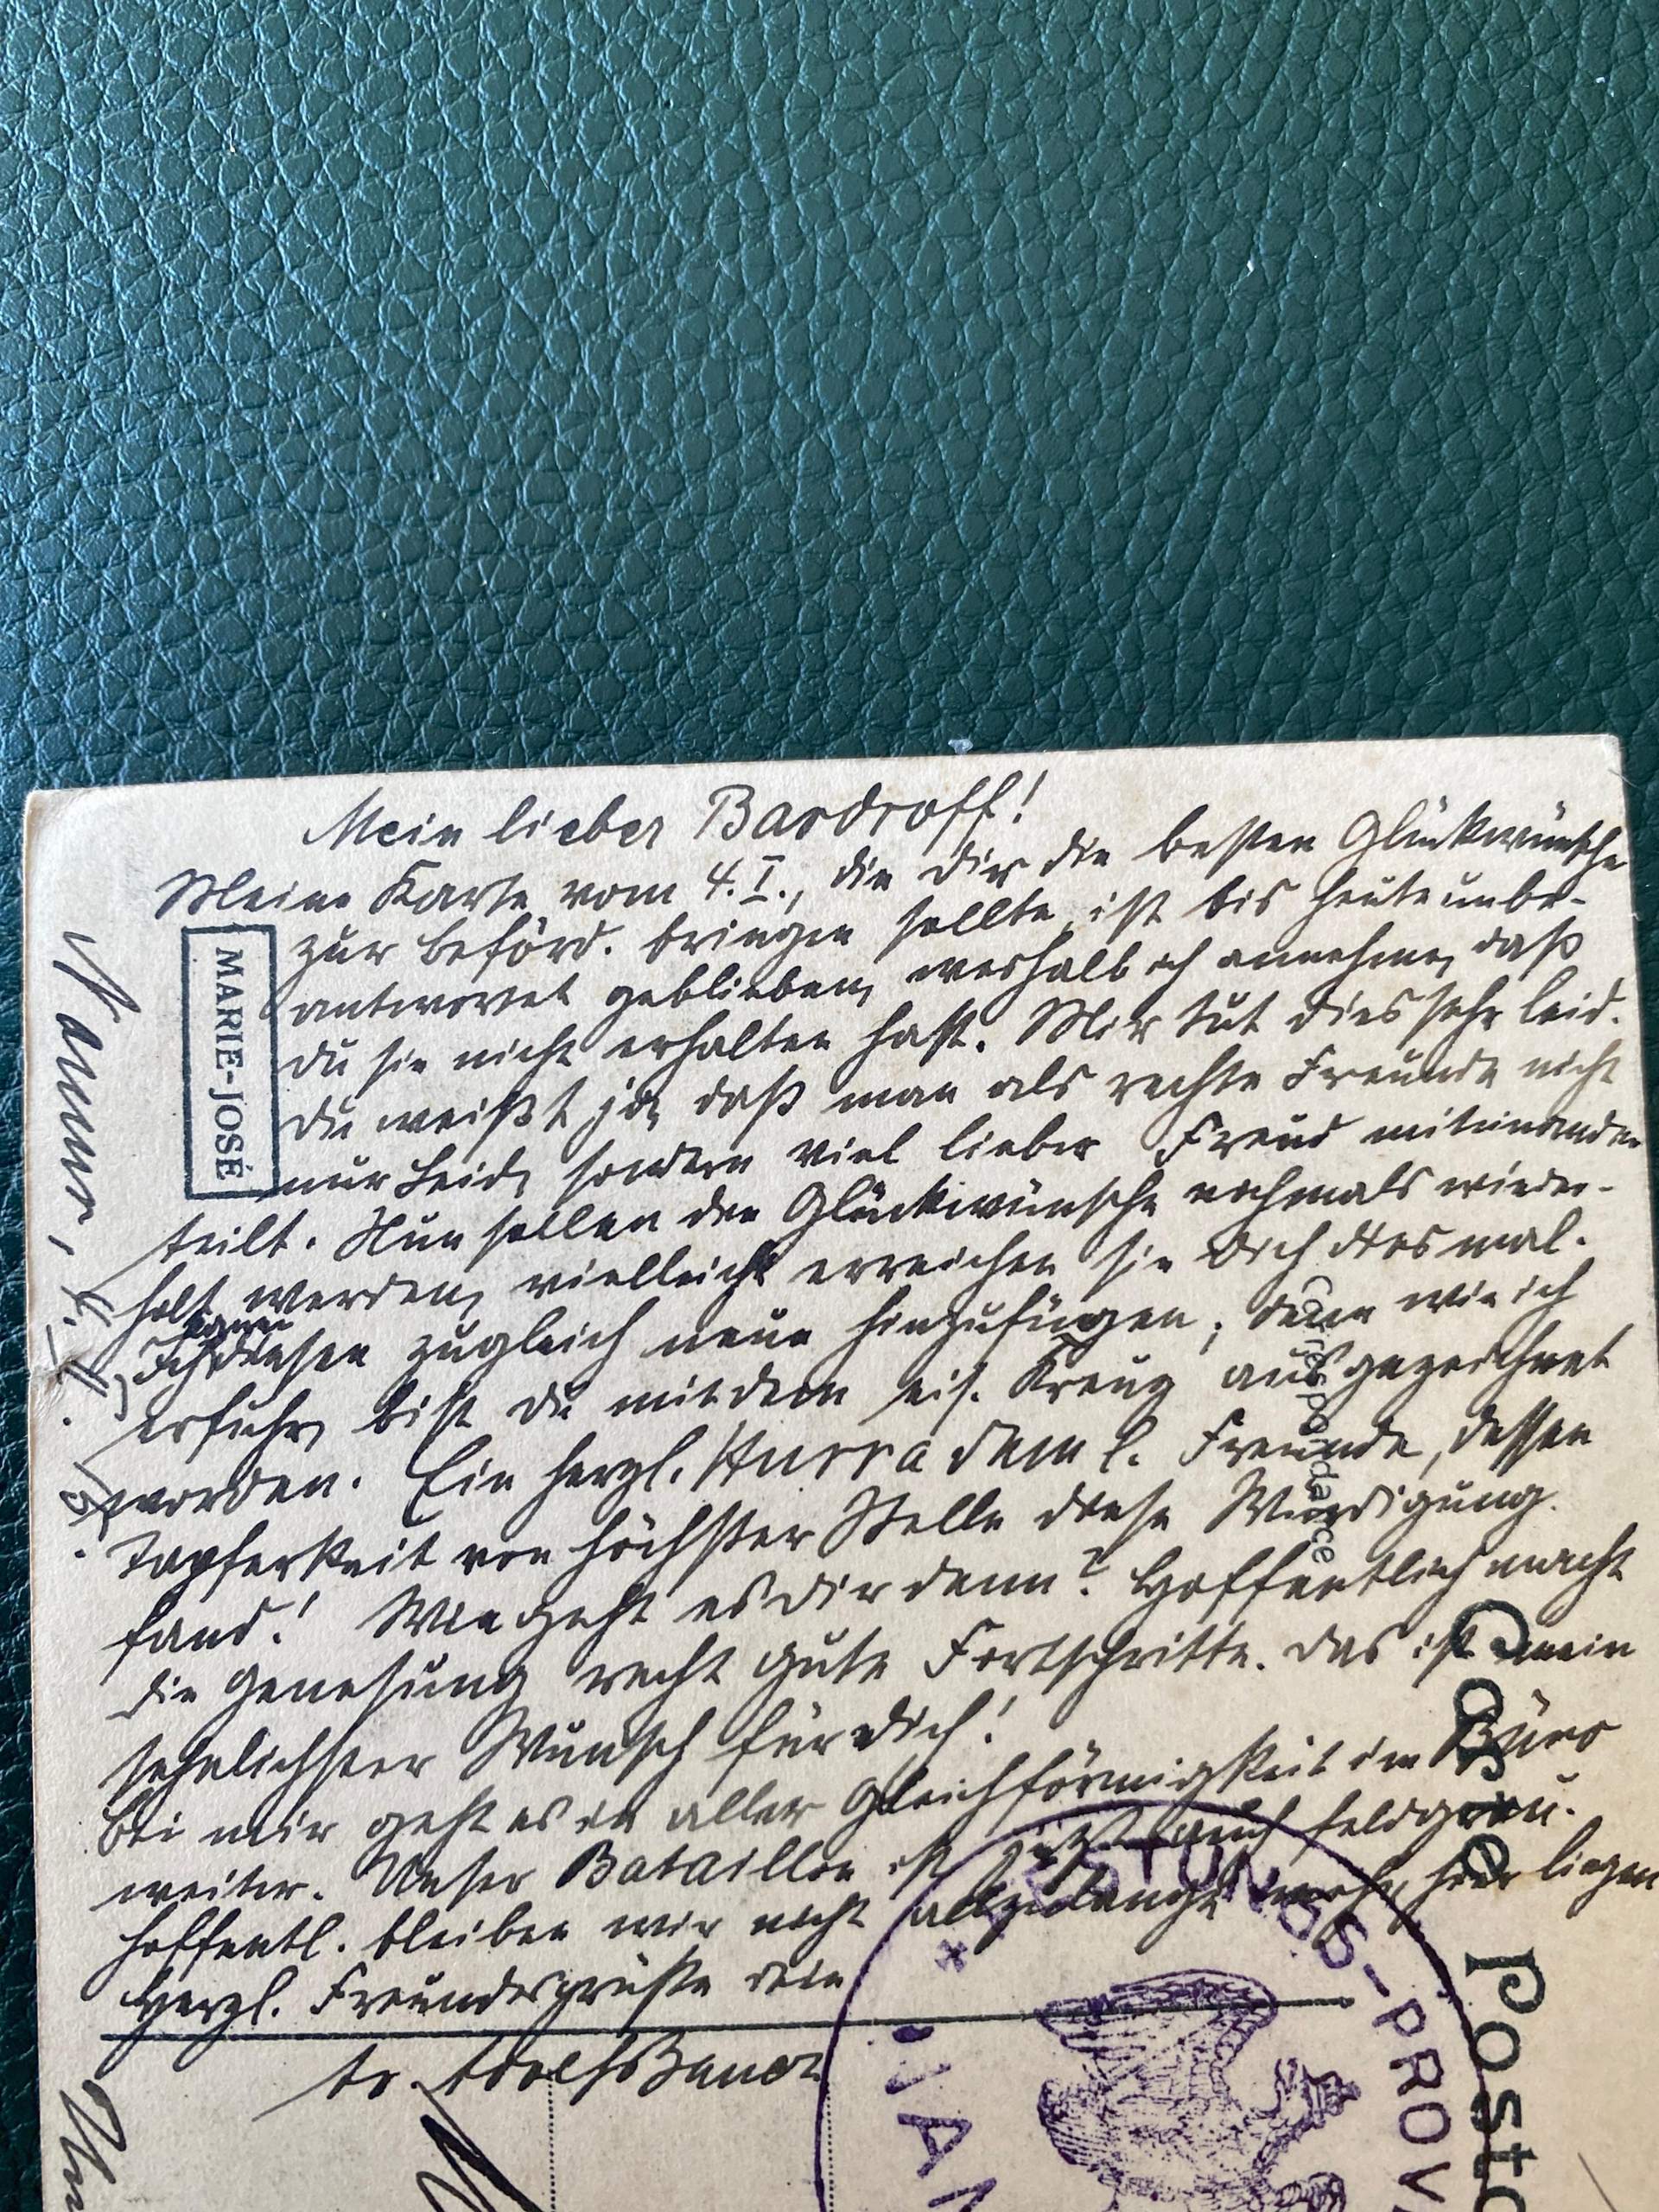 Mein lieber Bardroff!
Meine Karte vom 4. I., die dir die besten Glückwünsche
zur Beförd. bringen sollte, ist bis heute unbe-
antwortet geblieben, weshalb ich annehme, daß
du sie nicht erhalten hast. Mir tut dies sehr leid.
Du weißt ja, daß man als rechte Freunde nicht
nur Leid, sondern viel lieber Freud miteinander
teilt. Nun sollen den Glückwünsche nochmals wieder-
holt werden, vielleicht erreichen sie Dich diesmal.
Ich diesen zugleich neue hinzufügen; denn wie ich
erfuhr, bist du mit dem eis. Kreuz ausgezeichnet
worden. Ein herzl. Hurra dem l. Freunde, dessen
Tapferkeit von höchster Stelle diese Würdigung
fand! Wie geht es dir denn? Hoffentlich macht
die Genesung recht gute Fortschritte. Das ist mein
sehnlichster Wunsch für dich!
Bei mir geht es in aller Gleichförmigkeit im Büro
weiter. Unser Bataillon ist jetzt auch feldgrau.
Hoffentl. bleiben wir nicht allzulange mehr hier liegen
Herzl. Freundesgrüße dein
tr. Adolf Bauer
Namur,
MARIE-JOSÉ
Correspondance
Carte Posta